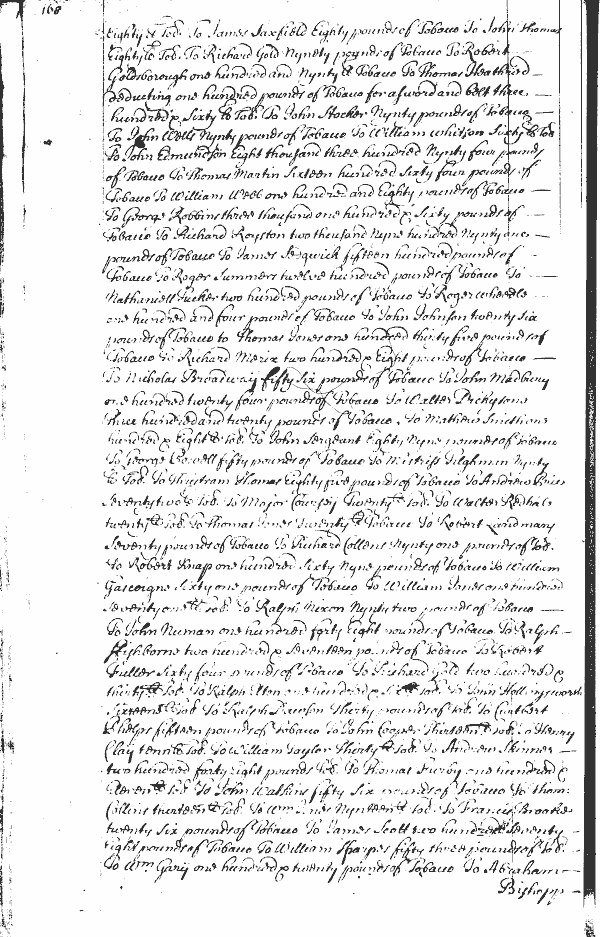 168
Eighty lb Tob. To James Saxfield Eighty pounds of Tobacco To John Thomas
Eighty lb Tob. To Richard Gold Nynety pounds of Tobacco To Robert
Goldsborough one hundred and Nynty lb Tobacco To Thomas Heathrod
deducting one hundred pounds of Tobacco for a sword and belt three
hundred & Sixty lb Tob. To John Stocker Nynty pounds of Tobacco
To John Wells Nynty pounds of Tobacco To William Whitson Sixty lb Tob
To John Edmundson Eight thousand three hundred Nynty four pounds
of Tobacco To Thomas Martin Sixteen hundred Sixty four pounds of
Tobacco To William Webb one hundred and Eighty pounds of Tobacco
To George Robbins three thousand one hundred & Sixty pounds of
Tobacco To Richard Royston two thousand Nyne hundred Nynty one
pounds of Tobacco To James Sedgwick fifteen hundred pounds of
Tobacco To Roger Summers twelve hundred pounds of Tobacco To
Nathaniell Tucker two hundred pounds of Tobacco To Roger Wheedle
one hundred and four pounds of Tobacco To John Johnson twenty six
pounds of Tobacco to Thomas Jones one hundred thirty five pounds of
Tobacco To Richard two hundred & Eight pounds of Tobacco
To Nicholas Broadway fifty Six pounds of Tobacco To John Madbury
one hundred twenty four pounds of Tobacco To Walter
three hundred and twenty pounds of Tobacco To Mathew
hundred & Eight lb Tob. To John Sergeant Eighty Nyne pounds of Tobacco
To George Cowell fifty pounds of Tobacco To Mistriss Tilghman Nynty
lb Tob. To Thustram Thomas Eighty five pounds of Tobacco To Andrew
Seventy two lb Tob. To Major Coursey Twenty lb Tob. To Walter
twenty lb Tob. To Thomas Jones twenty lb Tobacco To Robert Landmary
Seventy pounds of Tobacco To Richard Collens Nynty one pounds of Tob.
To Robert Knapp one hundred Sixty Nyne pounds of Tobacco To William
Gascorgne Sixty one pounds of Tobacco To William Jones one hundred
Seventy one lb Tob. To Ralph Nixon Nynty two pounds of Tobacco
To John Numan one hundred forty Eight pounds of Tobacco To Ralph
Fishborne two hundred & Seventeen pounds of Tobacco To Robert
Fuller Sixty four pounds of Tobacco To Richard Gold two hundred &
thirty lb Tob. To Ralph Elton one hundred & lb Tob. To John Hollingsworth
Sixteen lb Tob To Ralph Dawson Thirty pounds of Tob. To Cuthbert
Phelps fifteen pounds of Tobacco To John Cooper Thirteen lb Tob. To Henry
Clay tenn lb Tob. To William Taylor Thirty lb Tob. To Andrew Skinner
two hundred forty eight pounds Tob. To Thomas Furby one hundred &
Eleven lb Tob. To John Watkins fifty Six pounds of Tobacco To Thom:
Collins thirteen lb Tob. To Wm Jones Nynteen lb Tob. To Francis Brooke
twenty Six pounds of Tobacco To James Scott two hundred Seventy
eight pounds of Tobacco To William Sharpes fifty three pounds of Tob.
To Wm Gary one hundred & twenty pounds of Tobacco To Abraham
Bishopp